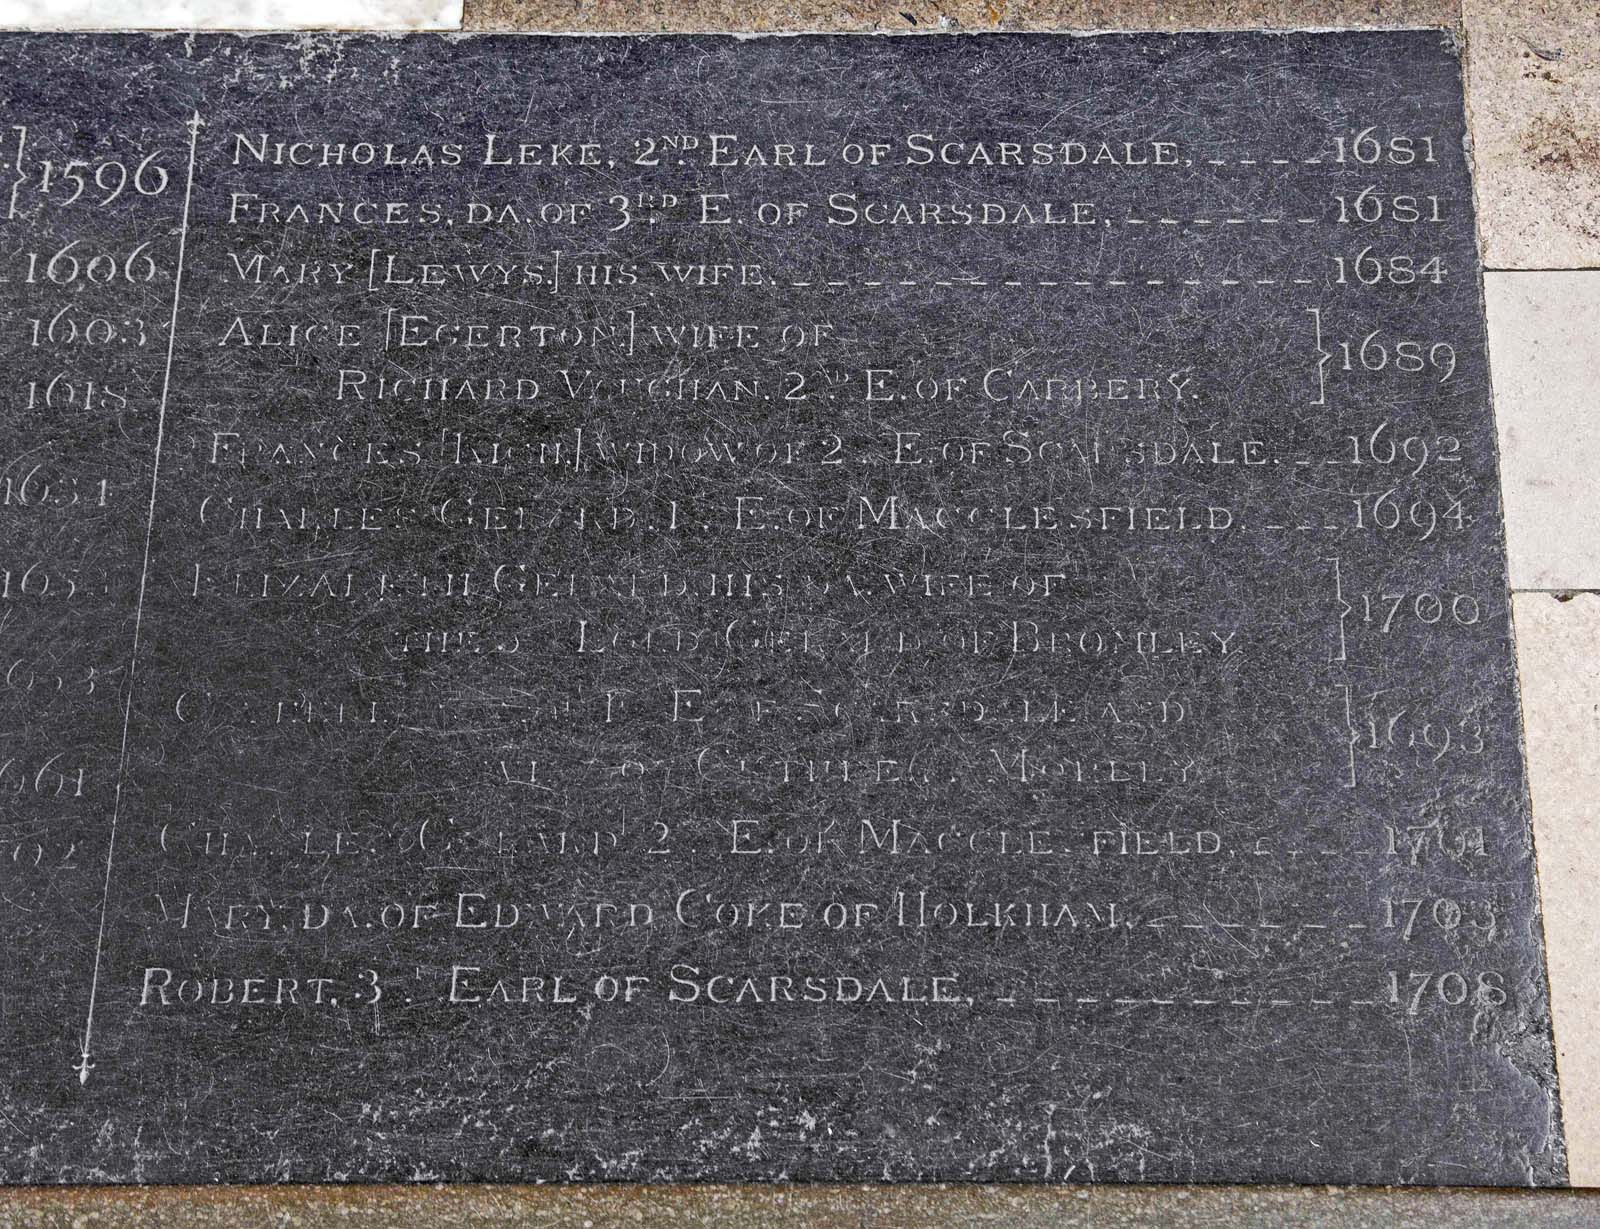 1596
1606
1603
1618
1661
NICHOLAS LEKE, 2ND EARL OF SCARSDALE, _ _ _ _ 1681
FRANCES, DA. OF 3RD E. OF SCARSDALE, _ _ _ _ _ _ 1681
MARY [LEWYS.] HIS WIFE. _ _ _ _ _ _ _ _ _ _ _ _ _ _ _ 1684
ALICE [EGERTON] WIFE OF
RICHARD VAUGHAN. 2ND E. OF CARBERY. } 1689
FRANCES [RICH.] WIDOW OF 2 E. OF SCARSDALE. _ _ 1692
CHARLES GERARD. 1 E. OF MACCLESFIELD. _ _ _ 1694
ELIZABETH GERARD. HIS DA. WIFE OF
THE LORD GERARD OF BROMLEY. } 1700
E. OF SCARSDALE AND
MORLEY } 1693
CHARLES GERARD 2 E. OF MACCLESFIELD, _ _ _ _ 1701
MARY. DA. OF EDWARD COKE OF HOLKHAM, _ _ _ _ _ _ 1703
ROBERT, 3 EARL OF SCARSDALE, _ _ _ _ _ _ _ _ _ _ 1708